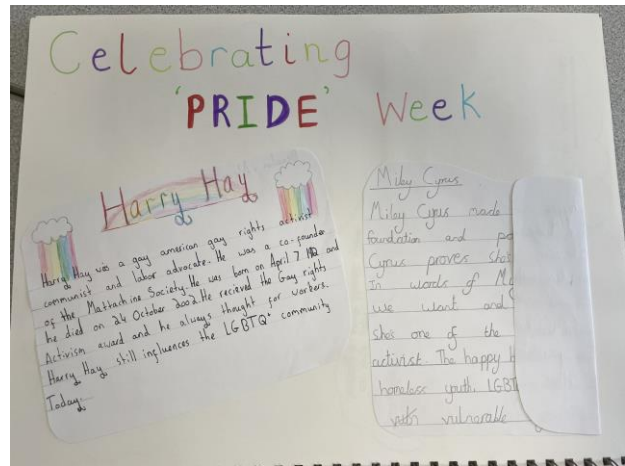 Celebrating
'PRIDE' Week
Harry Hay
Harry Hay was a gay american gay rights activist
communist and labor advocate. He was a co-founder
of the Mattachine Society. He was born on April 7 and
he died on 24 October 2002. He recieved the Gay rights
Activism award and he always thought for workers.
Harry Hay still influences the LGBTQ+ community
Today.
Miley Cyrus
Miley Cyrus made
foundation and
Cyrus proves shes
In words of
we want and
she's one of the
activist. The happy
homeless youth, LGBT
with vulnerable